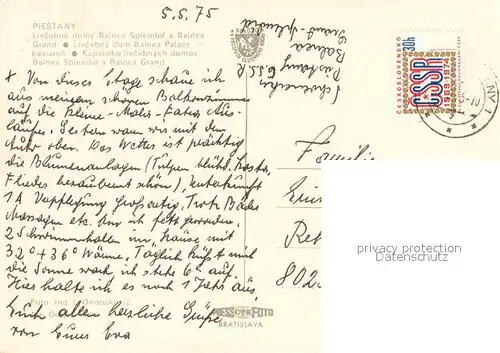 5.5.75
PIEŠŤANY
Liečebné domy Balnea Splendid a Balnea
Grand ● Liečebný dom Balnea Palace —
kaviareň ● Kúpalisko liečebných domov
Balnea Splendid a Balnea Grand
Piestany ČSSR
Balnea
Grand-Splendid
ČESKOSLOVENSKO
30h
ČSSR
1969-1974
x Von dieser Etage schaue ich
aus meinem schönen Balkonzimmer
auf die Kleine-Matra-Fatra Aus-
läufer. Gestern waren wir mit dem
Auto oben. Das Wetter ist prächtig
die Blumenanlagen (Tulpen blühd.
Flieder beraubernd schön), Unterkunft
1A Verpflegung großartig. Trotz Bäder
Massagen etc. bin ich fett geworden.
2 Schwimmhallen im Hause mit
32° + 36° Wärme. Täglich küßt mich
die Sonne wach ich stehe 6h auf.
Hier halte ich es noch 1 Jahr aus.
Euch allen herzliche Grüße
von Eurer Eva
Familie
Ret
802
Foto Ing. J. Ondrejkovič
PRESSFOTO
BRATISLAVA
privacy protection
Datenschutz